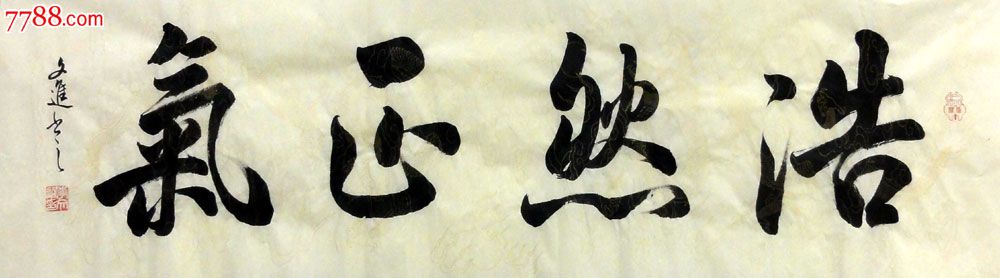 7788.com
浩然正氣
文進书之